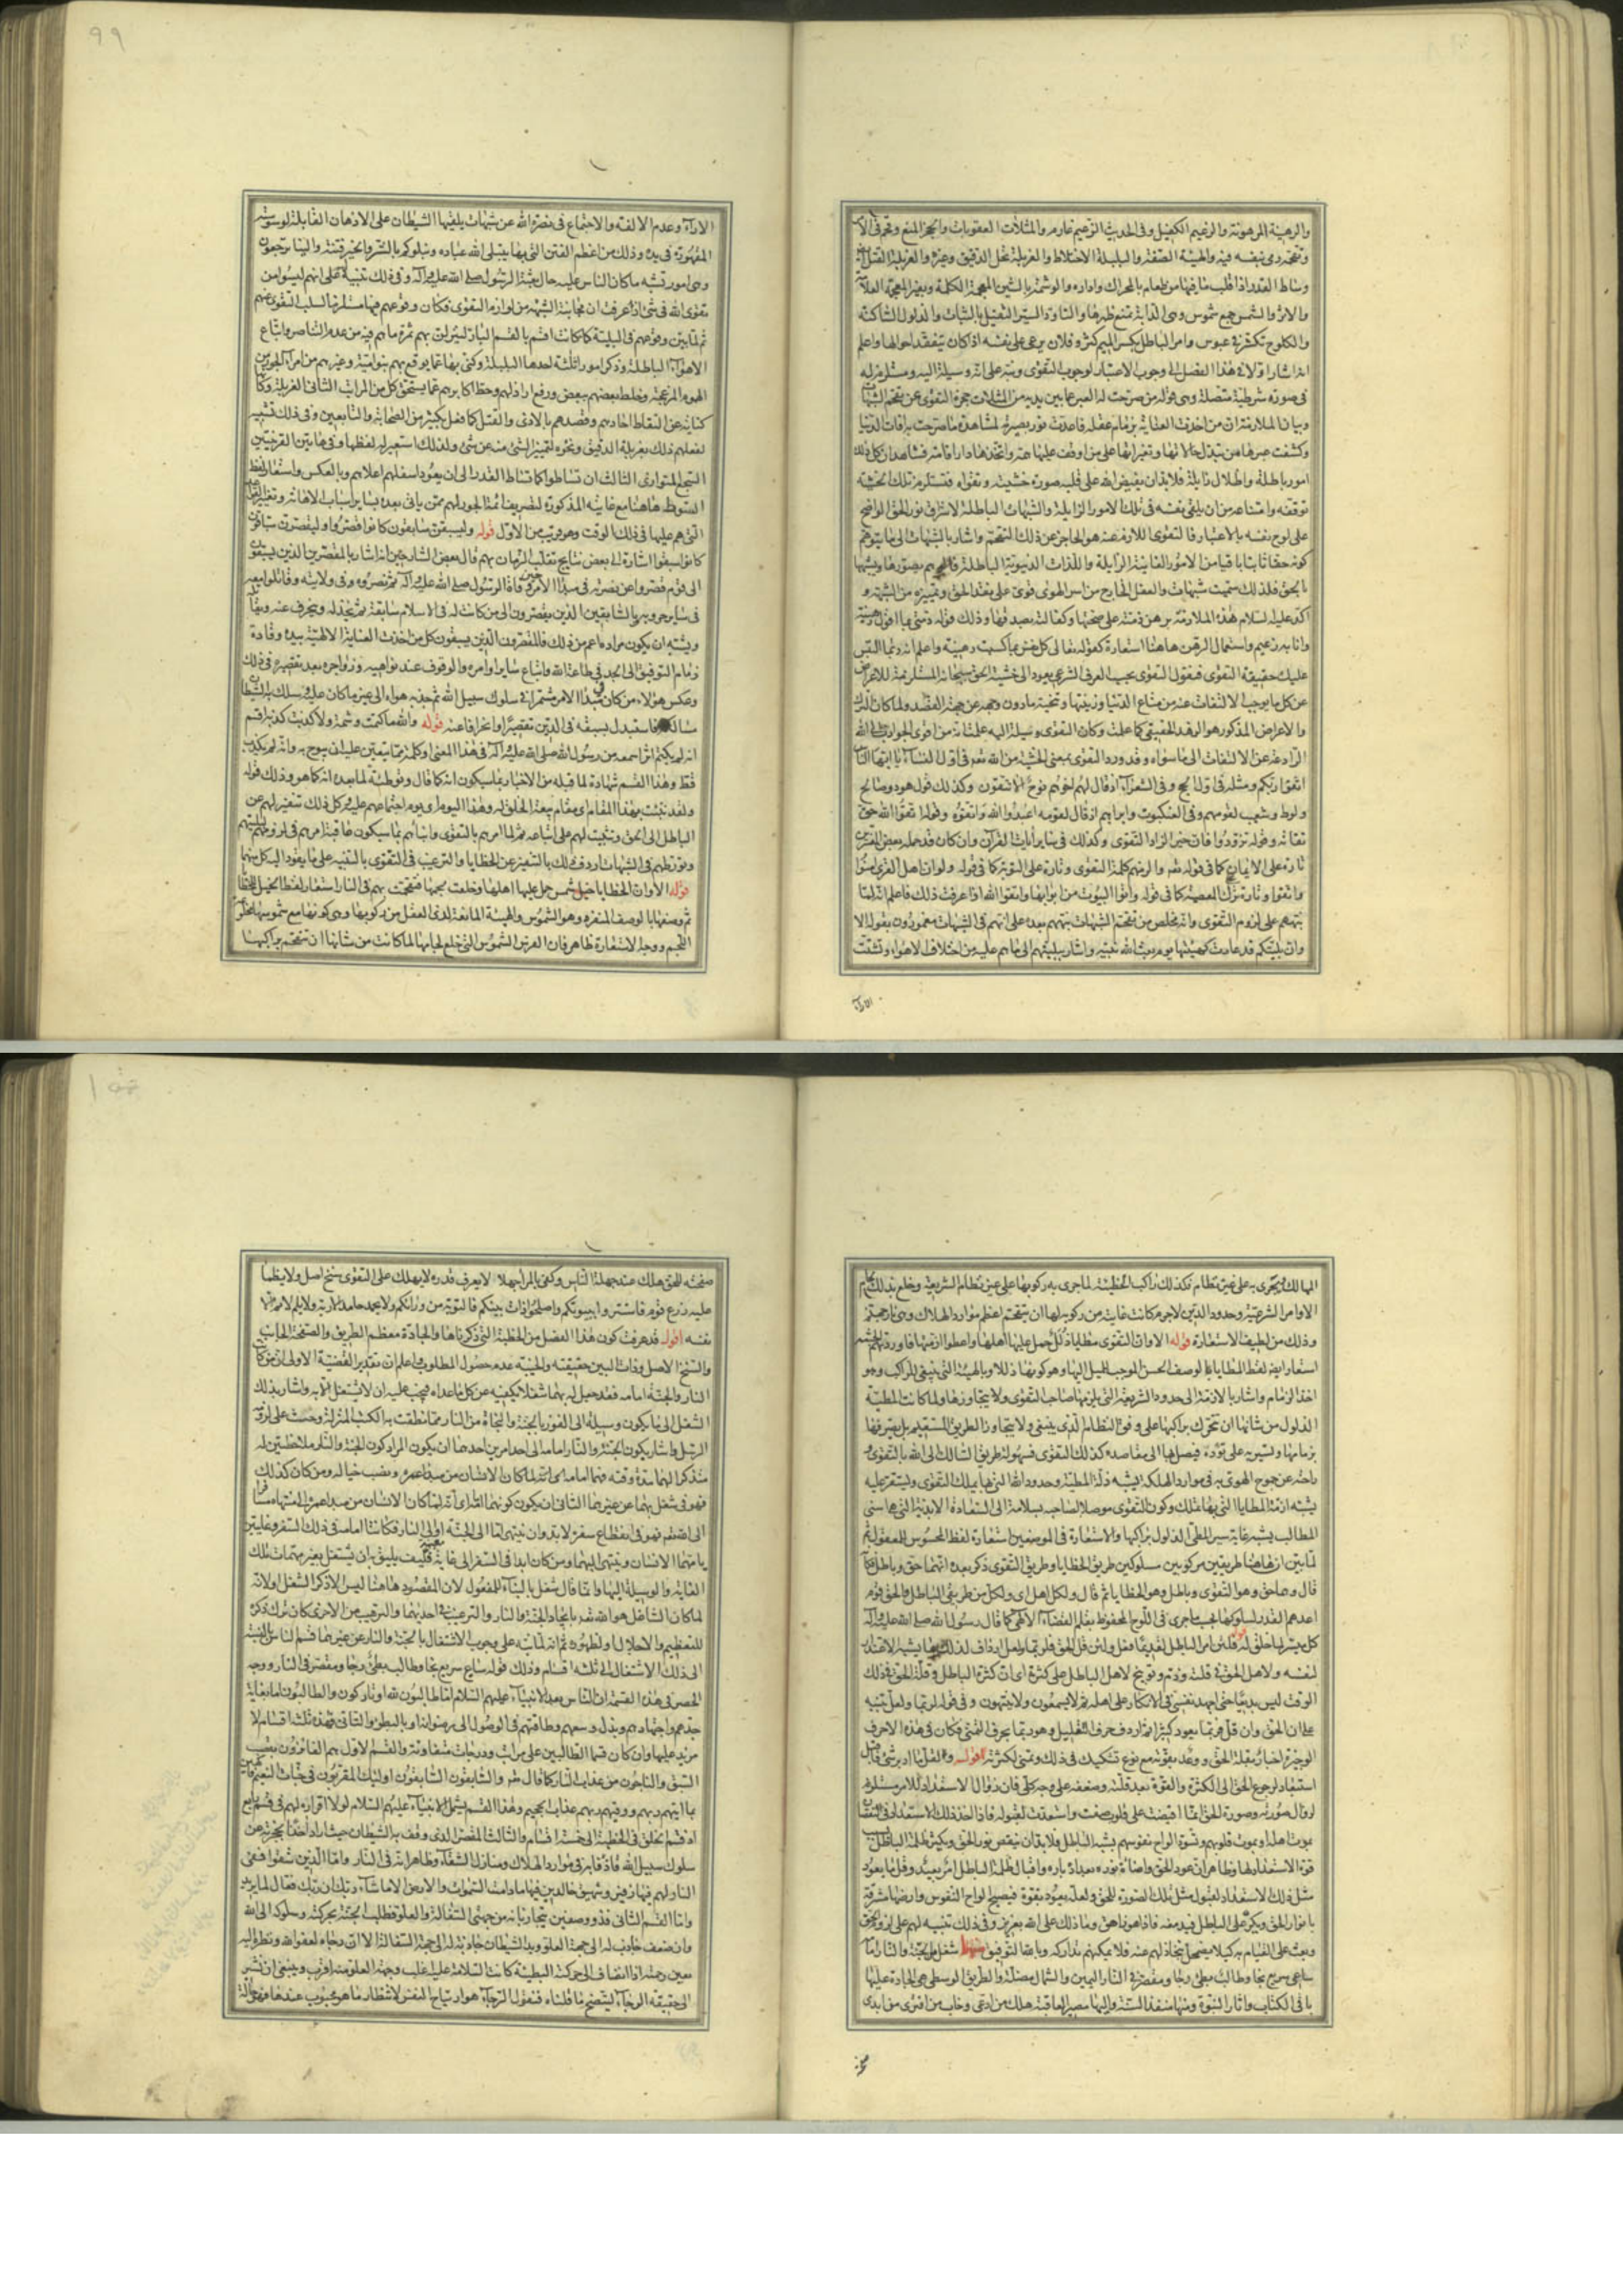 والرهينة المرهونة والزعيم الكفيل وفى الحديث الزعيم غارم والمثلات العقوبات والحجز المنع وتقحم فى الامر
وتقحمه رمى بنفسه فيه والهيئة الصفة والبلبلة الاختلاط والغربلة نخل الدقيق وغيره والغربلة القتل
وساط القدر اذا قلب ما فيها من طعام بالمحراك واداره والوشمة بالشين المعجمة الكلمة وبغير المعجمة العلامة
والاثر والشمس جمع شموس وهى الدابة تمنع ظهرها والتاود السير الثقيل بالثبات والذلول الساكنة
والكلوح تكشر فى عبوس وامر الباطل بكسر الميم كثر وفلان يرعى على نفسه اذا كان يتفقد احوالها واعلم
انه اشار اولا فى هذا الفصل الى وجوب الاعتبار لوجوب التقوى ونبه على انه وسيلة اليه ومستلزم له
فى صورة شرطية متصلة وهى قوله من صرحت له العبر عما بين يديه من المثلات حجزه التقوى عن تقحم الشبهات
وبيان الملازمة ان من اخذت العناية بزمام عقله فاعدت نور بصيرته لمشاهدة ما صرحت به افات الدنيا
وكشفت عبرها من تبدل حالاتها وتغيراتها على من اوقف عليها همه واتخذها دار اقامته فشاهد ان كل ذلك
امور باطلة واظلال زايلة فلا بد ان يفيض الله على قلبه صورة خشيته وتقواه فتستلزم تلك الخشية
توقفه وامتناعه من ان يلقى نفسه فى تلك الامور الزايلة والشبهات الباطلة لاشراق نور الحق الواضح
على لوح نفسه بالاعتبار فالتقوى اللازمة عنه هو الحاجز عن ذلك التقحم واشار بالشبهات الى ما يتوهم
كونه حقا ثابتا باقيا من الامور الفانية الزايلة واللذات الدنيوية الباطلة فالوهم يصورها ويشبهها
بالحق فلذلك سميت شبهات والعقل الخارج من اسر الهوى قوى على نقد الحق وتمييزه من الشبه و
اكد عليه السلام هذه الملازمة برهن ذمته على صحتها وكفالته بصدقها وذلك قوله ذمتى بما اقول رهينة
وانا به زعيم واستعمال الرهن هاهنا استعارة كقوله تعالى كل نفس بما كسبت رهينة واعلم انه ربما التبس
عليك حقيقة التقوى فنقول التقوى بحسب العرف الشرعى يعود الى خشية الحق سبحانه المستلزمة للاعراض
عن كل ما يوجب الالتفات عنه من متاع الدنيا وزينتها وتنحية ما دون وجهه عن جهة القصد ولما كان الترك
والاعراض المذكور هو الزهد الحقيقى كما علمت وكان التقوى وسيلة اليه علمت انه من اقوى الجواذب الى الله
الرادعة عن الالتفات الى ما سواه وقد ورد التقوى بمعنى الخشية من الله تعالى فى اول النساء يا ايها الناس
اتقوا ربكم ومثله فى اول الحج وفى الشعراء اذ قال لهم اخوهم نوح الا تتقون وكذلك قول هود وصالح
ولوط وشعيب لقومهم وفى العنكبوت وابراهيم اذ قال لقومه اعبدوا الله واتقوه وقوله اتقوا الله حق
تقاته وقوله تزودوا فان خير الزاد التقوى وكذلك فى ساير ايات القرآن وان كان قد حمله بعض المفسرين
تارة على الايمان كما فى قوله تعالى والزمهم كلمة التقوى وتارة على التوبة كما فى قوله ولو ان اهل القرى امنوا
واتقوا وتارة ترك المعصية كما فى قوله وأتوا البيوت من ابوابها واتقوا الله اذا عرفت ذلك فاعلم انه لما
نبههم على لزوم التقوى وانه مخلص من تقحم الشبهات نبههم بعده على انهم فى الشبهات مغمورون بقوله الا
وان بليتكم قد عادت كهيئتها يوم بعث الله نبيه واشار ببليتهم الى ما هم عليه من اختلاف الاهواء وتشتت
الاراء
٩٩
الاراء وعدم الالفة والاجتماع فى نصرة الله عن شبهات يلقيها الشيطان على الاذهان القابلة لوسوسته
المقهورة فى يده وذلك من اعظم الفتن التى بها يبتلى الله عباده ونبلوكم بالشر والخير فتنة والينا ترجعون
وهى امور تشبه ما كان الناس عليه حال بعثة الرسول صلى الله عليه واله وفى ذلك تنبيه على انهم ليسوا من
تقوى الله فى شىء اذا عرفت ان مجانبة الشبهة من لوازم التقوى فكان وقوعهم فيها مستلزما لسلب التقوى عنهم
ثم لما بين وقوعهم فى البلية كما كانت اقسم بالقسم البار لينزلن بهم ثمرة ما هم فيه من عدم التناصر واتباع
الاهواء الباطلة وذكر امورا ثلثة احدها البلبلة وكنى بها عما يوقع بهم بنو امية وغيرهم من امراء الجور من
الهموم المزعجة وخلط بعضهم ببعض ورفع اراذلهم وحط اكابرهم عما يستحق كل من المراتب الثانى الغربلة وكانها
كناية عن التقاط احادهم وقصدهم بالاذى والقتل كما فعل بكثير من الصحابة والتابعين وفى ذلك تشبيه
لفعلهم ذلك بغربلة الدقيق ونحوه لتمييز الشىء منه عن شىء ولذلك استعير له لفظها وفى هاتين القرينتين
السجع المتوازى الثالث ان تساطوا كما تساط القدر الى ان يعود اسفلهم اعلاهم وبالعكس واستعار لفظ
السوط هاهنا مع غايته المذكورة لتصريف ائمة الجور لهم ممن ياتى بعده بساير اسباب الاهانة وتغيير القواعد
التى هم عليها فى ذلك الوقت وهو قريب من الاول قوله وليسبقن سابقون كانوا قصروا وليقصرن سباقون
كانوا سبقوا اشارة الى بعض نتايج تقلب الزمان بهم قال بعض الشارحين انه اشار بالمقصرين الذين يسبقون
الى قوم قصروا عن نصرته فى مبدأ الامر حين وفاة الرسول صلى الله عليه واله ثم نصروه فى ولايته وقاتلوا معه
فى ساير حروبه وبالسابقين الذين يقصرون الى من كانت له فى الاسلام سابقة ثم يخذله وينحرف عنه ويقاتله
ويشبه ان يكون مراده اعم من ذلك فالمقصرون الذين يسبقون كل من اخذت العناية الالهية بيده وقاده
زمام التوفيق الى الجد فى طاعة الله واتباع ساير اوامره والوقوف عند نواهيه وزواجره بعد تقصيره فى ذلك
وعكس هؤلاء من كان مبدأ الامر مشمرا فى سلوك سبيل الله ثم جذبه هواه الى غير ما كان عليه وسلك به الشيطان
مسالكه فاستبدل بسبقه فى الدين تقصيرا وانحرافا عنه قوله والله ما كتمت وشمة ولا كذبت كذبة اقسم
انه لم يكتم اثرا سمعه من رسول الله صلى الله عليه واله فى هذا المعنى او كلمة مما يتعين عليه ان يبوح به وانه لم يكذب
قط وهذا القسم شهادة لما قبله من الاخبار بما سيكون انه كما قال وتوطئة لما بعده انه كما هو وذلك قوله
ولقد نبئت بهذا المقام اى مقام بيعة الخلق له وهذا اليوم اى يوم اجتماعهم عليه وكل ذلك تنفير لهم عن
الباطل الى الحق وتثبيت لهم على اتباعه ثم لما امرهم بالتقوى وانباهم بما سيكون عاقبة امرهم فى لزوم بليتهم
وتورطهم فى الشبهات اردف ذلك بالتنفير عن الخطايا والترغيب فى التقوى بالتنبيه على ما يقود اليه كل منهما
قوله الا وان الخطايا خيل شمس حمل عليها اهلها وخلعت لجمها فتقحمت بهم فى النار استعار لفظ الخيل للخطايا
ثم وصفها بالوصف المنفر وهو الشموس والهيئة المانعة لذى العقل من ركوبها وهى كونها مع شموسها مخلوعة
اللجم ووجه الاستعارة ظاهر فان الفرس الشموس التى خلع لجامها لما كانت من شانها ان تتقحم براكبها
المهالك وتجرى به على غير نظام فكذلك راكب الخطيئة لما جرى به ركوبها على غير نظام الشريعة وخلع بذلك لجام
الاوامر الشرعية وحدود الدين لا جرم كانت غايته من ركوبه لها ان يتقحم اعظم موارد الهلاك وهى نار جهنم
وذلك من لطيف الاستعارة قوله الا وان التقوى مطايا ذلل حمل عليها اهلها واعطوا ازمتها فاوردتهم الجنة
استعار ايضا لفظ المطايا بالوصف الحسن الموجب للميل اليها وهو كونها ذللا وبالهيئة التى تنبغى للراكب وهو
اخذ الزمام واشار بالازمة الى حدود الشريعة التى يلزمها صاحب التقوى ولا يتجاوزها ولما كانت المطية
الذلول من شانها ان تتحرك براكبها على وفق النظام الذى ينبغى ولا يتجاوز الطريق المستقيم بل يصرفها
بزمامها وتسير به على تؤدة فيصل بها الى مقاصده كذلك التقوى فسهولة طريق السالك الى الله بالتقوى و
راحته عن جموح الهوى به فى موارد الهلكة يشبه ذلة المطية وحدود الله التى بها يملك التقوى ويستقر عليه
يشبه ازمة المطايا التى بها تملك وكون التقوى موصلا لصاحبه بسلامة الى السعادة الابدية التى هى اسنى
المطالب يشبه غاية سير المطى الذلول براكبها والاستعارة فى الموضعين استعارة لفظ المحسوس للمعقول ثم
لما بين ان هاهنا طريقين مركوبين مسلوكين طريق الخطايا وطريق التقوى ذكر بعده انهما حق وباطل فكانه
قال وهما حق وهو التقوى وباطل وهو الخطايا ثم قال ولكل اهل اى ولكل من طريقى الباطل والحق قوم
اعدهم القدر لسلوكها بحسب ما جرى فى اللوح المحفوظ بقلم القضاء الالهى كما قال رسول الله صلى الله عليه واله
كل ميسر لما خلق له قوله فلئن امر الباطل لقديما فعل ولئن قل الحق فلربما ولعل ارداف لذلك بما يشبه الاعتذار
لنفسه ولاهل الحق فى قلته وذم وتوبيخ لاهل الباطل على كثرته اى ان كثرة الباطل وقلة الحق فى ذلك
الوقت ليس بديعا حتى اجهد نفسى فى الانكار على اهله ثم لا يسمعون ولا ينتهون وفى قوله لربما ولعل تنبيه
على ان الحق وان قل فربما يعود كثيرا ثم اردف حرف التقليل وهو ربما بحرف التمنى فكان فى هذه الاحرف
الوجيزة اخبار بقلة الحق ووعد بقوته مع نوع تشكيك فى ذلك وتمنى لكثرته قوله ولقل ما ادبر شىء فاقبل
استبعاد لرجوع الحق الى الكثرة والقوة بعد قلته وضعفه على وجه كلى فان زوال الاستعداد للامر مستلزم
لزوال صورته وصورة الحق انما افيضت على قلوب صفت واستعدت لقبوله فاذا اخذ ذلك الاستعداد فى النقصان
بموت اهله او بموت قلوبهم وتسود الواح نفوسهم بشبه الباطل فلا بد ان ينقص نور الحق ويكثر ظلمة الباطل بسبب
قوة الاستعداد لها وظاهر ان عود الحق واضاءة نوره بعد ادباره واقبال ظلمة الباطل امر بعيد وقل ما يعود
مثل ذلك الاستعداد لقبول مثل تلك الصورة للحق ولعله يعود بقوة فيصبح الواح النفوس وارضها مشرقة
بانوار الحق ويكر على الباطل فيدمغه فاذا هو زاهق وما ذلك على الله بعزيز وفى ذلك تنبيه لهم على لزوم الحق
وبعث على القيام به كيلا يضمحل بتخاذلهم عنه فلا يمكنهم تداركه وبالله التوفيق منها شغل من الجنة والنار امامه
ساعى سريع نجا وطالب بطىء رجا ومقصر فى النار اليمين والشمال مضلة والطريق الوسطى هى الجادة عليها
باقى الكتاب واثار النبوة ومنها منفذ السنة واليها مصير العاقبة هلك من ادعى وخاب من افترى من ابدى
صفحته للحق هلك عند جهلة الناس وكفى بالمرء جهلا الا يعرف قدره لا يهلك على التقوى سنخ اصل ولا يظمأ
عليه زرع قوم فاستتروا ببيوتكم واصلحوا ذات بينكم فالتوبة من ورائكم ولا يحمد حامد الا ربه ولا يلم لايم الا
نفسه اقول قد عرفت كون هذا الفصل من الخطبة التى ذكرناها والجادة معظم الطريق والصفحة الجانب
والسنخ الاصل وذات البين حقيقته والخيبة عدم حصول المطلوب واعلم ان تقدير القضية الاولى ان من كان
النار والجنة امامه فقد جعل له بهما شغلا يكفيه عن كل ما عداه فيجب عليه ان لا يشتغل الا به واشار بذلك
الشغل الى ما يكون وسيلة الى الفوز بالجنة والنجاة من النار مما نطقت به الكتب المنزلة وحثت على لزومه
الرسل واشار بكون الجنة والنار امامه الى احد امرين احدهما ان يكون المراد كون الجنة والنار ملاحظتين له
متذكرا لهما مدة وقته فهما امامه اى انه لما كان الانسان من مبدأ عمره ونصب خياله ومن كان كذلك
فهو فى شغل بهما عن غيرهما الثانى ان يكون كونهما امامه اى انه لما كان الانسان من مبدأ عمره الى منتهاه مسافرا
الى الله تعالى فهو فى انقطاع سفره لا بد وان ينتهى اما الى الجنة او الى النار فكانتا امامه فى ذلك السفر وغايتين
يامهما الانسان وينتهى اليهما ومن كان ابدا فى السفر الى غاية معينة فكيف يليق به ان يشتغل بغير مهمات تلك
الغاية والوسيلة اليها وانما قال شغل بالبناء للمفعول لان المقصود هاهنا ليس الا ذكر الشغل او لانه
لما كان الشاغل هو الله تعالى بايجاد الجنة والنار والترغيب فى احديهما والترهيب من الاخرى كان ترك ذكره
للتعظيم والاجلال او لظهوره ثم انه لما نبه على وجوب الاشتغال بالجنة والنار عن غيرهما قسم الناس بالنسبة
الى ذلك الاشتغال الى ثلثة اقسام وذلك قوله ساع سريع نجا وطالب بطىء رجا ومقصر فى النار ووجه
الحصر فى هذه القسمة ان الناس بعد الانبياء عليهم السلام اما طالبون لله او تاركون والطالبون اما بغاية
جدهم واجتهادهم وبذل وسعهم وطاقتهم فى الوصول الى رضوانه او بالبطء والتانى فهذه ثلثة اقسام لا
مزيد عليها وان كان قسما الطالبين على مراتب ودرجات متفاوتة والقسم الاول هم الفائزون بقصب
السبق والناجون من عذاب النار كما قال تعالى والسابقون السابقون اولئك المقربون فى جنات النعيم فاكهين
بما اتيهم ربهم ووقيهم ربهم عذاب الجحيم وهذا القسم يشمل الانبياء عليهم السلام لولا افراده لهم فى قسم رابع
سلوك سبيل الله فاذاقه فى موارد الهلاك ومنازل الشقاء وظاهر انه فى النار واما الذين شقوا ففى
النار لهم فيها زفير وشهيق خالدين فيها ما دامت السموات والارض الا ما شاء ربك ان ربك فعال لما يريد
واما القسم الثانى فذو وصفين يتجاذبانه من جهتى السفالة والعلو فطلب الجنة بحركته وسلوكه الى الله
وان ضعف جاذب له الى جهة العلو ويد الشيطان جاذبة له الى جهة السفالة الا ان رجاه لعفو الله ونظره اليه
بعين رحمته اذا انضاف الى حركته البطيئة كانت السلامة عليه اغلب وجهة العلو منه اقرب وينبغى ان نشير
الى حقيقة الرجاء ليتضح ما قلناه فنقول الرجاء هو ارتياح النفس لانتظار ما هو محبوب عندها فهو حالة